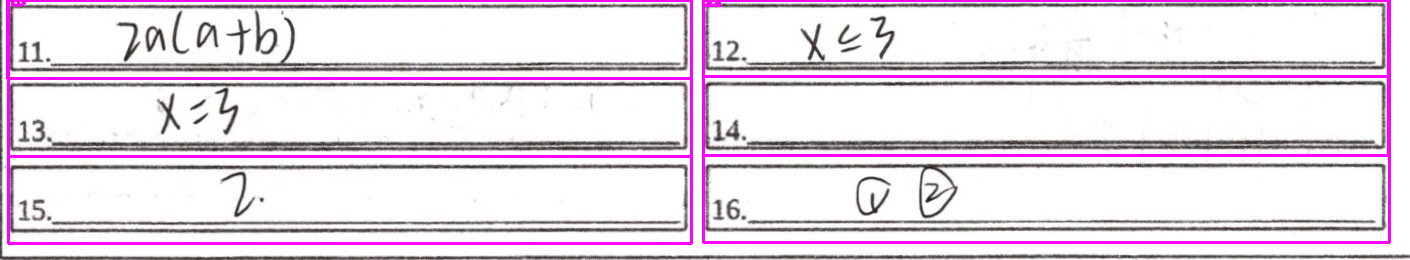 11. 2a(a+b)
12. x≤3
13. x=3
14.
15. 2.
16. ①②